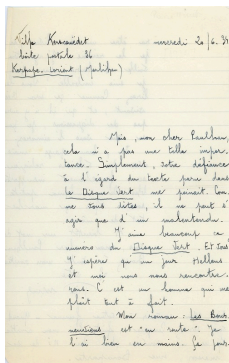 mercredi 20/6.34
boîte postale 36
Mais, mon cher Paulhan,
cela n'a pas une telle impor-
tance. Simplement, votre défiance
à l'égard du texte paru dans
le Disque Vert me peinait. Com-
me vous dites, il ne peut s'
agir que d'un malentendu.
J'aime beaucoup ce
numéro du Disque Vert. Et vous
J'espère qu'un jour Hellens
et moi nous nous rencontre-
rons. C'est un homme qui me
plaît tout à fait.
Mon roman:
est "en route". Je
l'ai bien en mains.